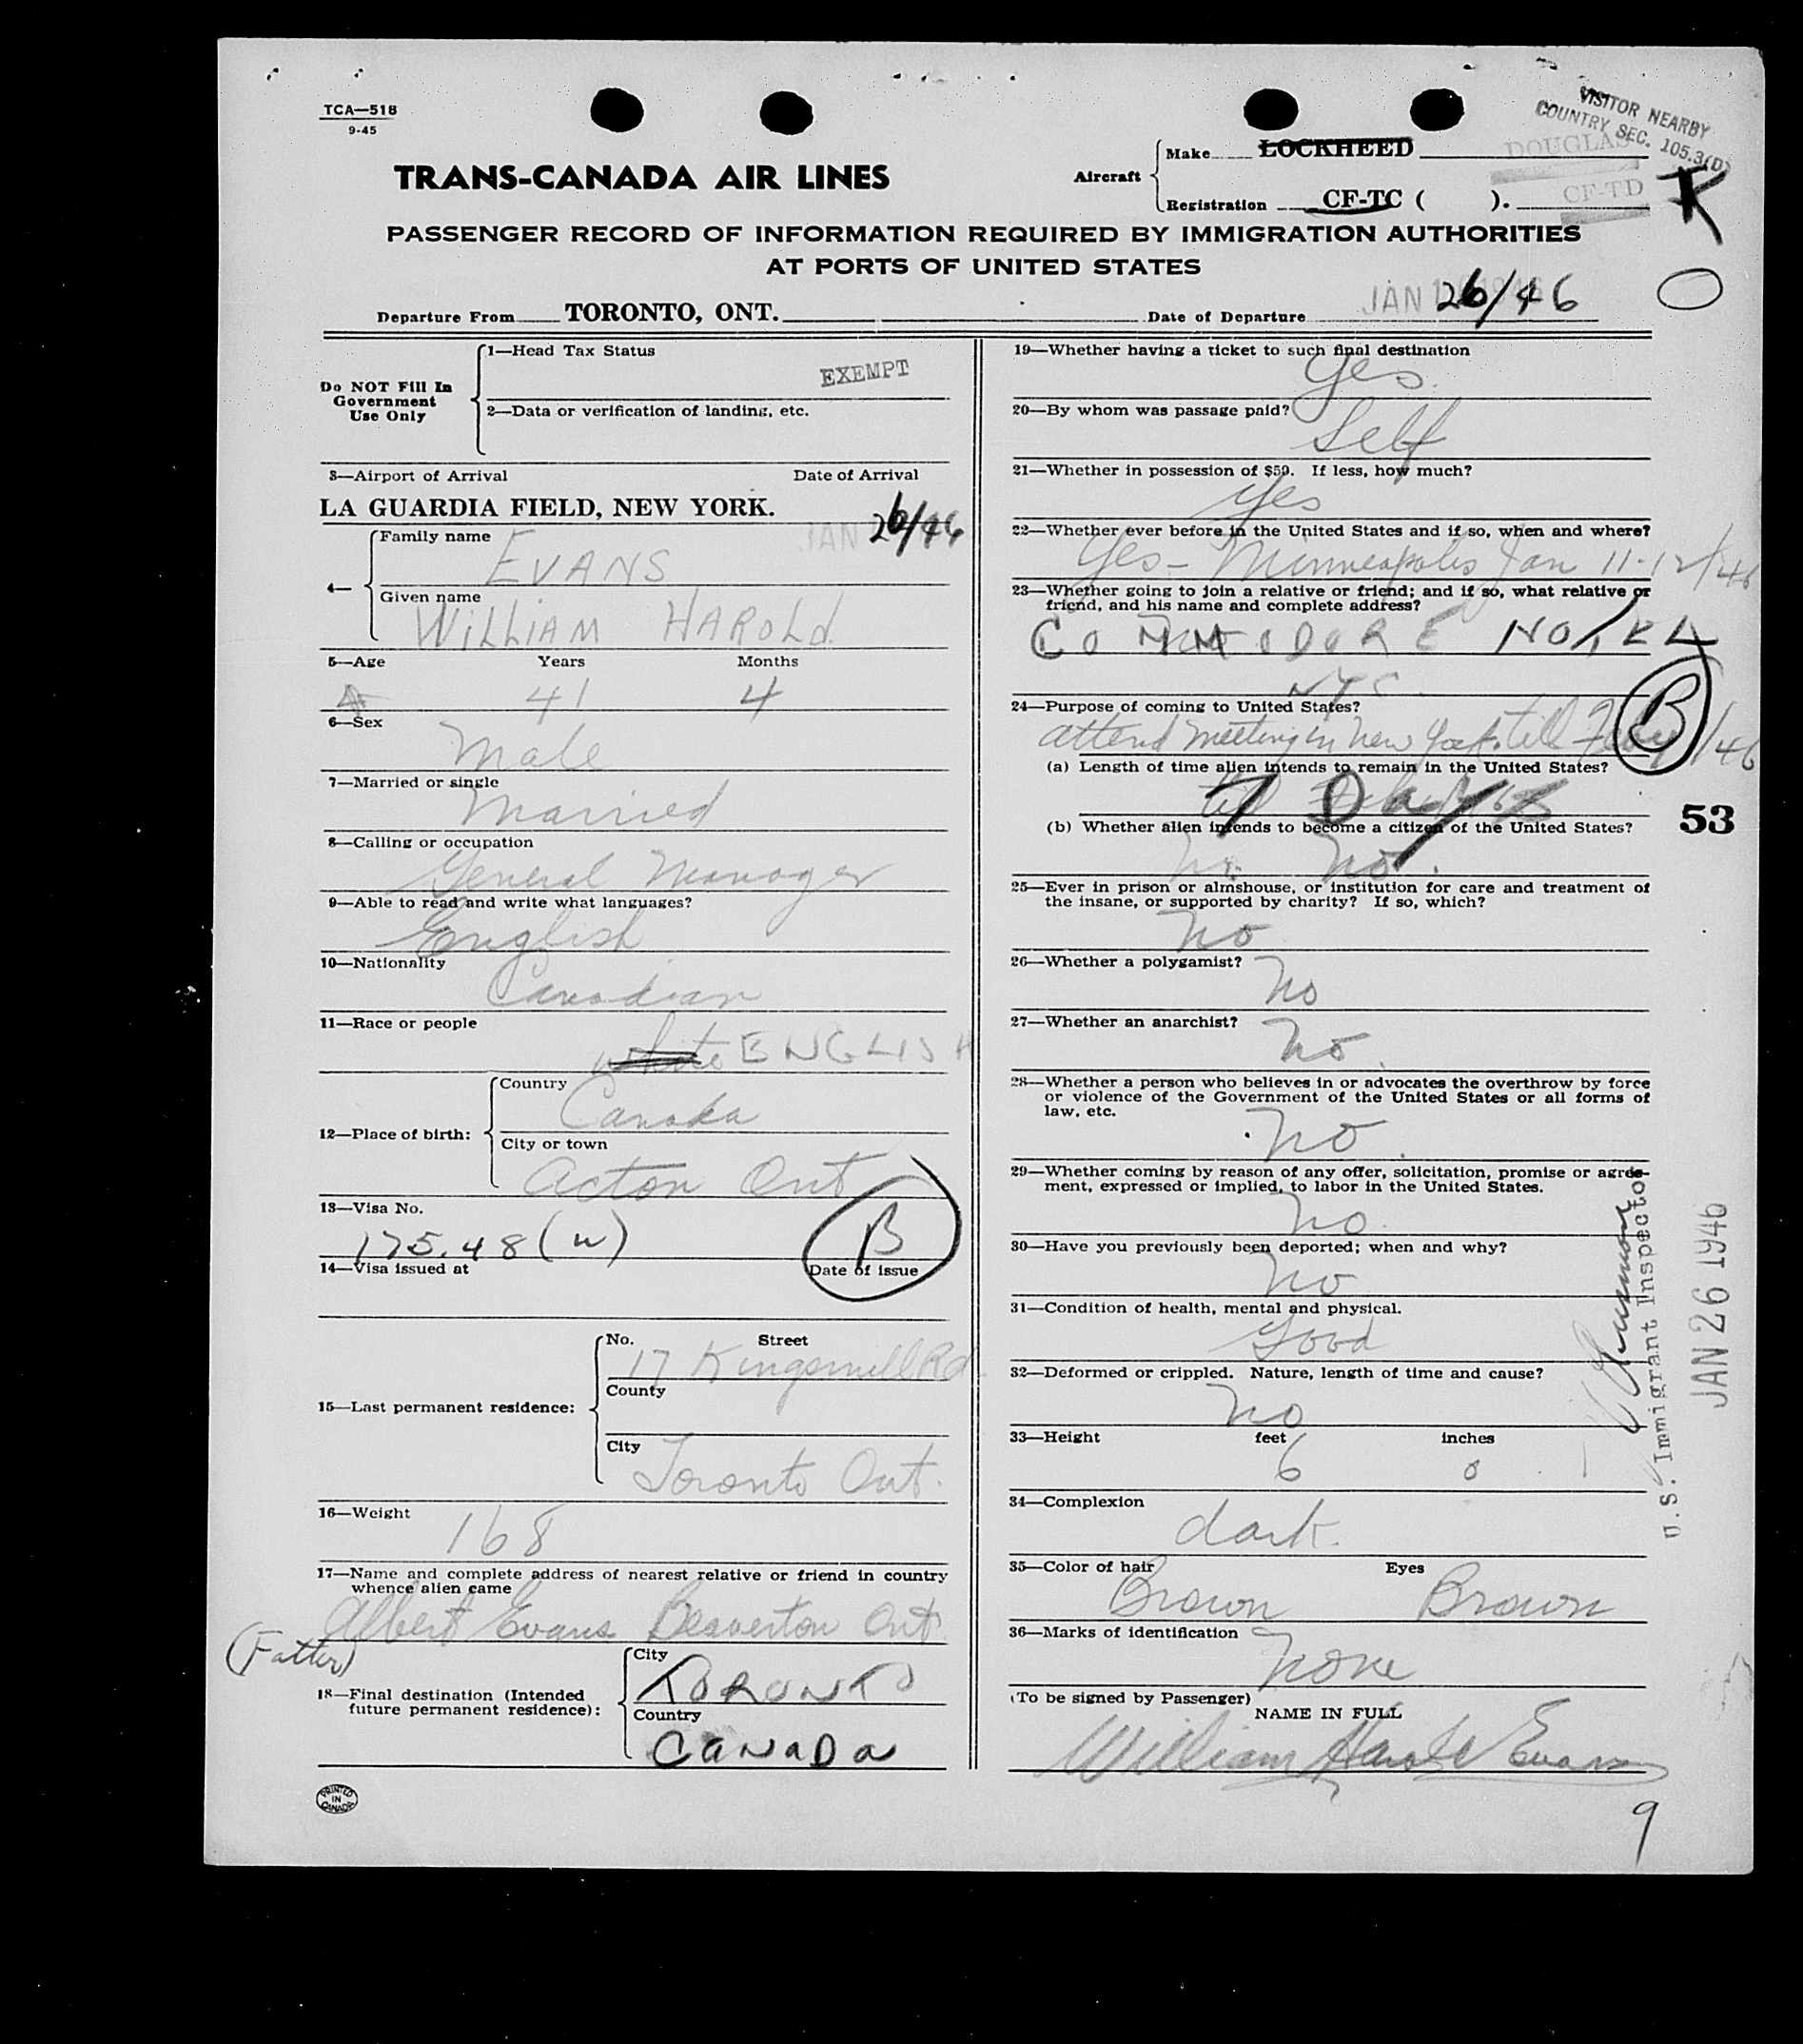 TCA—518
9-45
VISITOR NEARBY
COUNTRY SEC. 105.3(D)
TRANS-CANADA AIR LINES
Aircraft
Make LOCKHEED DOUGLAS
Registration CF-TC ( ). CF-TD
PASSENGER RECORD OF INFORMATION REQUIRED BY IMMIGRATION AUTHORITIES
AT PORTS OF UNITED STATES
Departure From TORONTO, ONT. Date of Departure JAN 26/46
Do NOT Fill In
Government
Use Only
1—Head Tax Status
EXEMPT
2—Data or verification of landing, etc.
3—Airport of Arrival Date of Arrival
LA GUARDIA FIELD, NEW YORK. JAN 26/46
4—
Family name EVANS
Given name WILLIAM HAROLD.
5—Age Years Months
41 4
6—Sex
Male
7—Married or single
Married
8—Calling or occupation
General Manager
9—Able to read and write what languages?
English
10—Nationality
Canadian
11—Race or people
white ENGLISH
12—Place of birth:
Country
Canada
City or town
Acton Ont
13—Visa No.
175.48 (w) B
14—Visa issued at Date of issue
15—Last permanent residence:
No. Street
17 Kingsmill Rd
County
City
Toronto Ont.
16—Weight
168
17—Name and complete address of nearest relative or friend in country
whence alien came
Albert Evans Beaverton Ont
(Father)
18—Final destination (Intended
future permanent residence):
City
TORONTO
Country
CANADA
PRINTED
IN
CANADA
19—Whether having a ticket to such final destination
Yes.
20—By whom was passage paid?
Self
21—Whether in possession of $50. If less, how much?
Yes
22—Whether ever before in the United States and if so, when and where?
Yes - Minneapolis Jan 11-12/46
23—Whether going to join a relative or friend; and if so, what relative or
friend, and his name and complete address?
COMMODORE HOTEL
NYC.
24—Purpose of coming to United States?
attend meeting in New York. till Feby 1/46
B
(a) Length of time alien intends to remain in the United States?
till 7 Days
53
(b) Whether alien intends to become a citizen of the United States?
No. No.
25—Ever in prison or almshouse, or institution for care and treatment of
the insane, or supported by charity? If so, which?
No
26—Whether a polygamist?
No
27—Whether an anarchist?
No.
28—Whether a person who believes in or advocates the overthrow by force
or violence of the Government of the United States or all forms of
law, etc.
No.
29—Whether coming by reason of any offer, solicitation, promise or agree-
ment, expressed or implied, to labor in the United States.
No.
30—Have you previously been deported; when and why?
No
31—Condition of health, mental and physical.
Good
32—Deformed or crippled. Nature, length of time and cause?
No
33—Height feet inches
6 0
34—Complexion
dark.
35—Color of hair Eyes
Brown Brown
36—Marks of identification
None
(To be signed by Passenger)
NAME IN FULL
William Harold Evans
U.S. Immigrant Inspector
JAN 26 1946
9